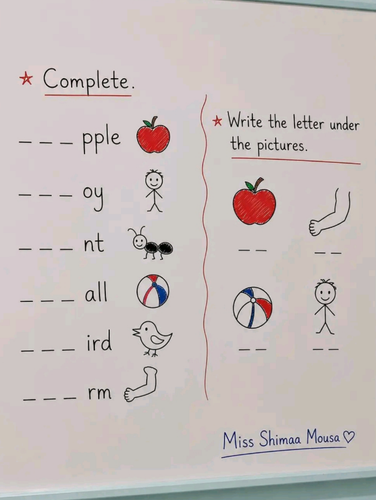 ☆ Complete.
_ _ _ pple
_ _ _ oy
_ _ _ nt
_ _ _ all
_ _ _ ird
_ _ _ rm
☆ Write the letter under
the pictures.
_ _ _ _
_ _ _ _
Miss Shimaa Mousa ♡